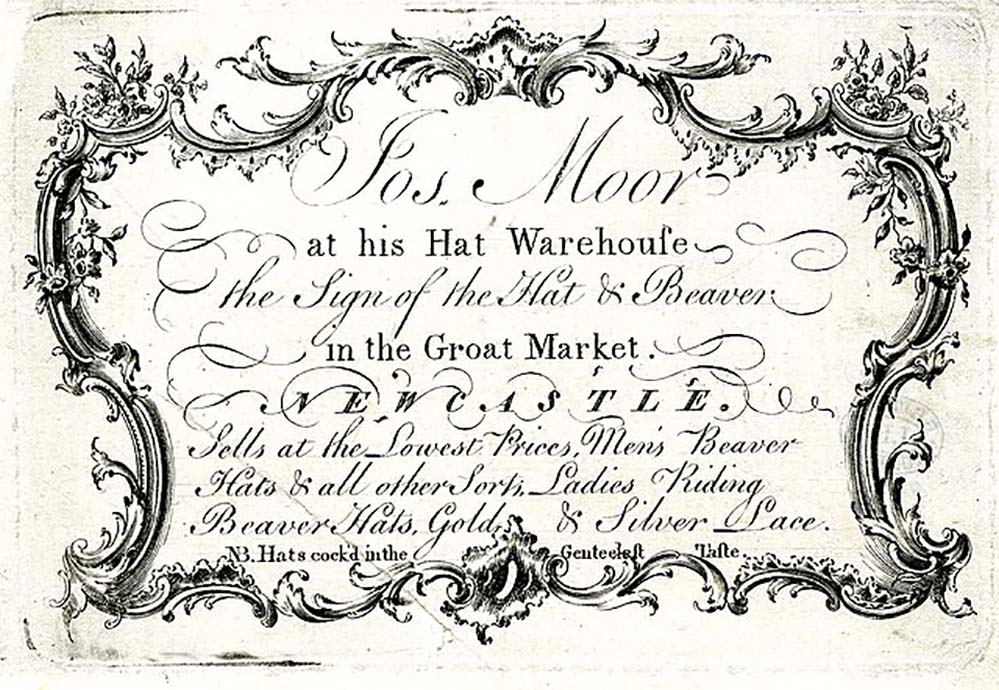 Jos. Moor
at his Hat Warehouſe
the Sign of the Hat & Beaver
in the Groat Market.
NEWCASTLE.
Sells at the Lowest Prices, Men's Beaver
Hats & all other Sorts, Ladies Riding
Beaver Hats, Gold & Silver Lace.
NB. Hats cock'd in the Genteeleſt Taſte.